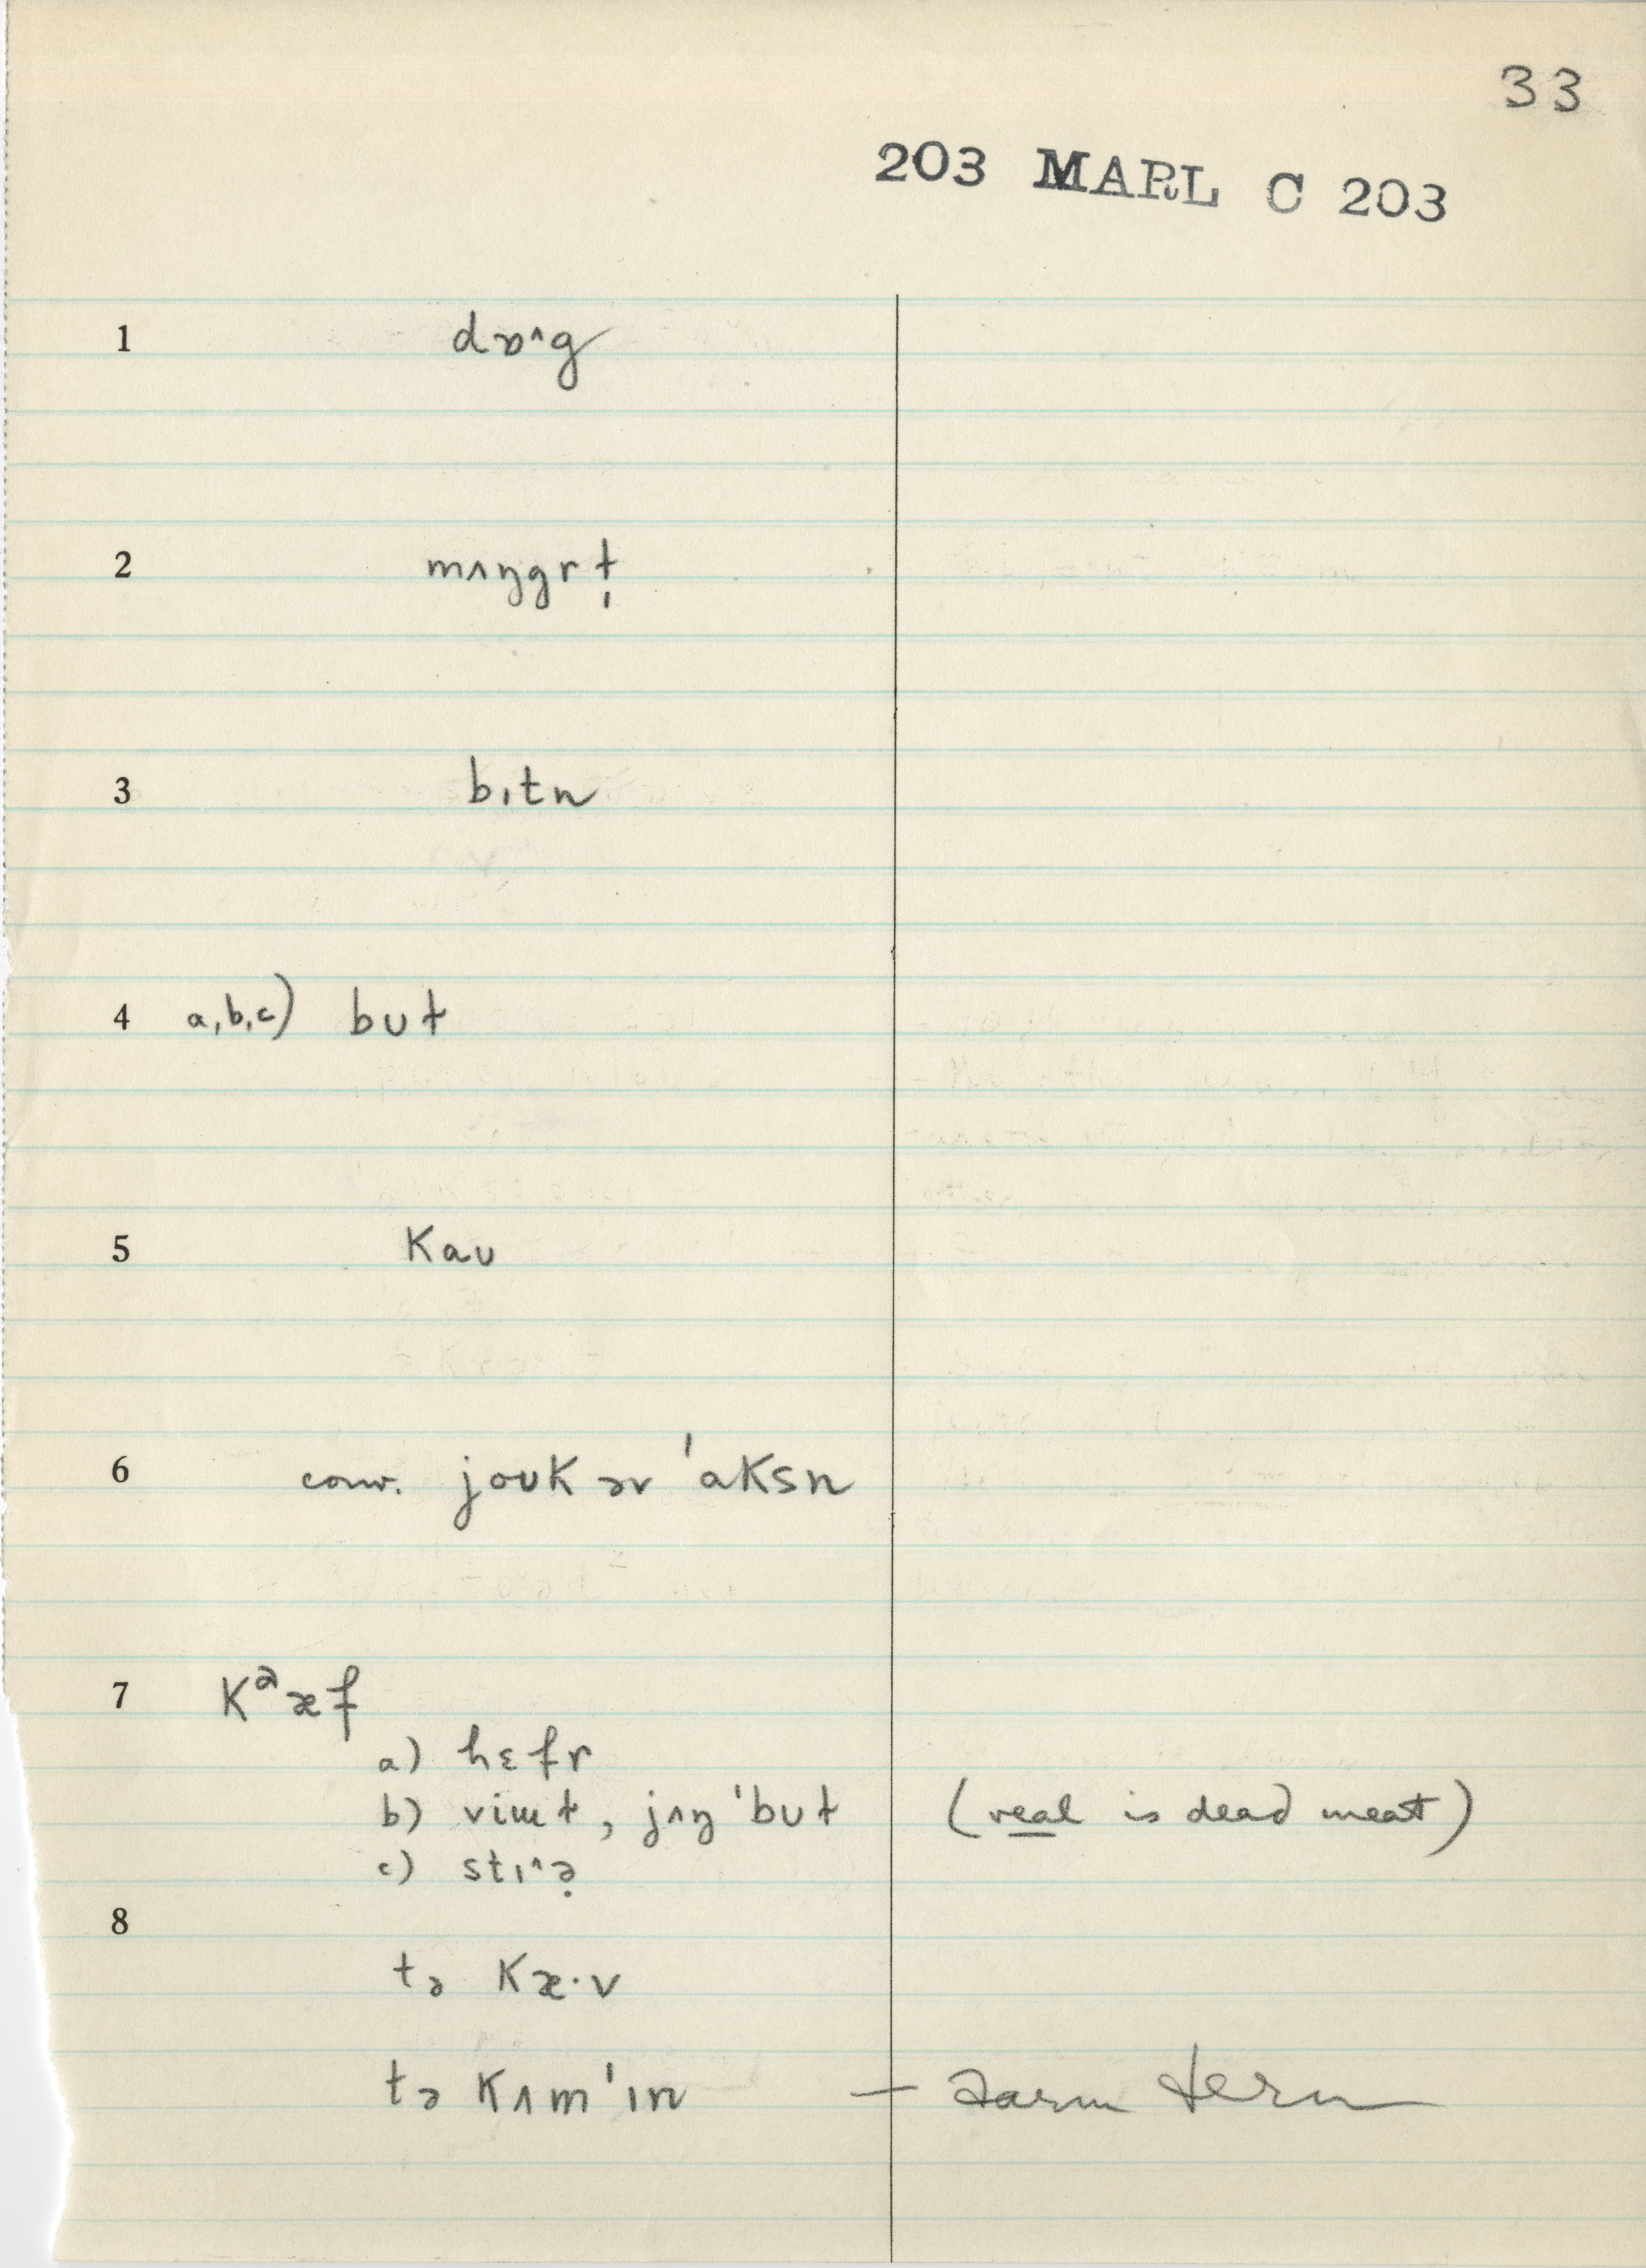 33
203 MARL C 203
1 dɒ˄g
2 mʌŋgrt̩
3 bɪtn
4 a,b,c) but
5 Kaʊ
6 conv. joʊK ər 'aKsn
7 Kᵊæf
a) hɛfr
b) viɯt, jʌŋ'but (veal is dead meat)
c) stɪ˄ə̣
8
tə Kæ·v
tə Kʌm'ɪn —